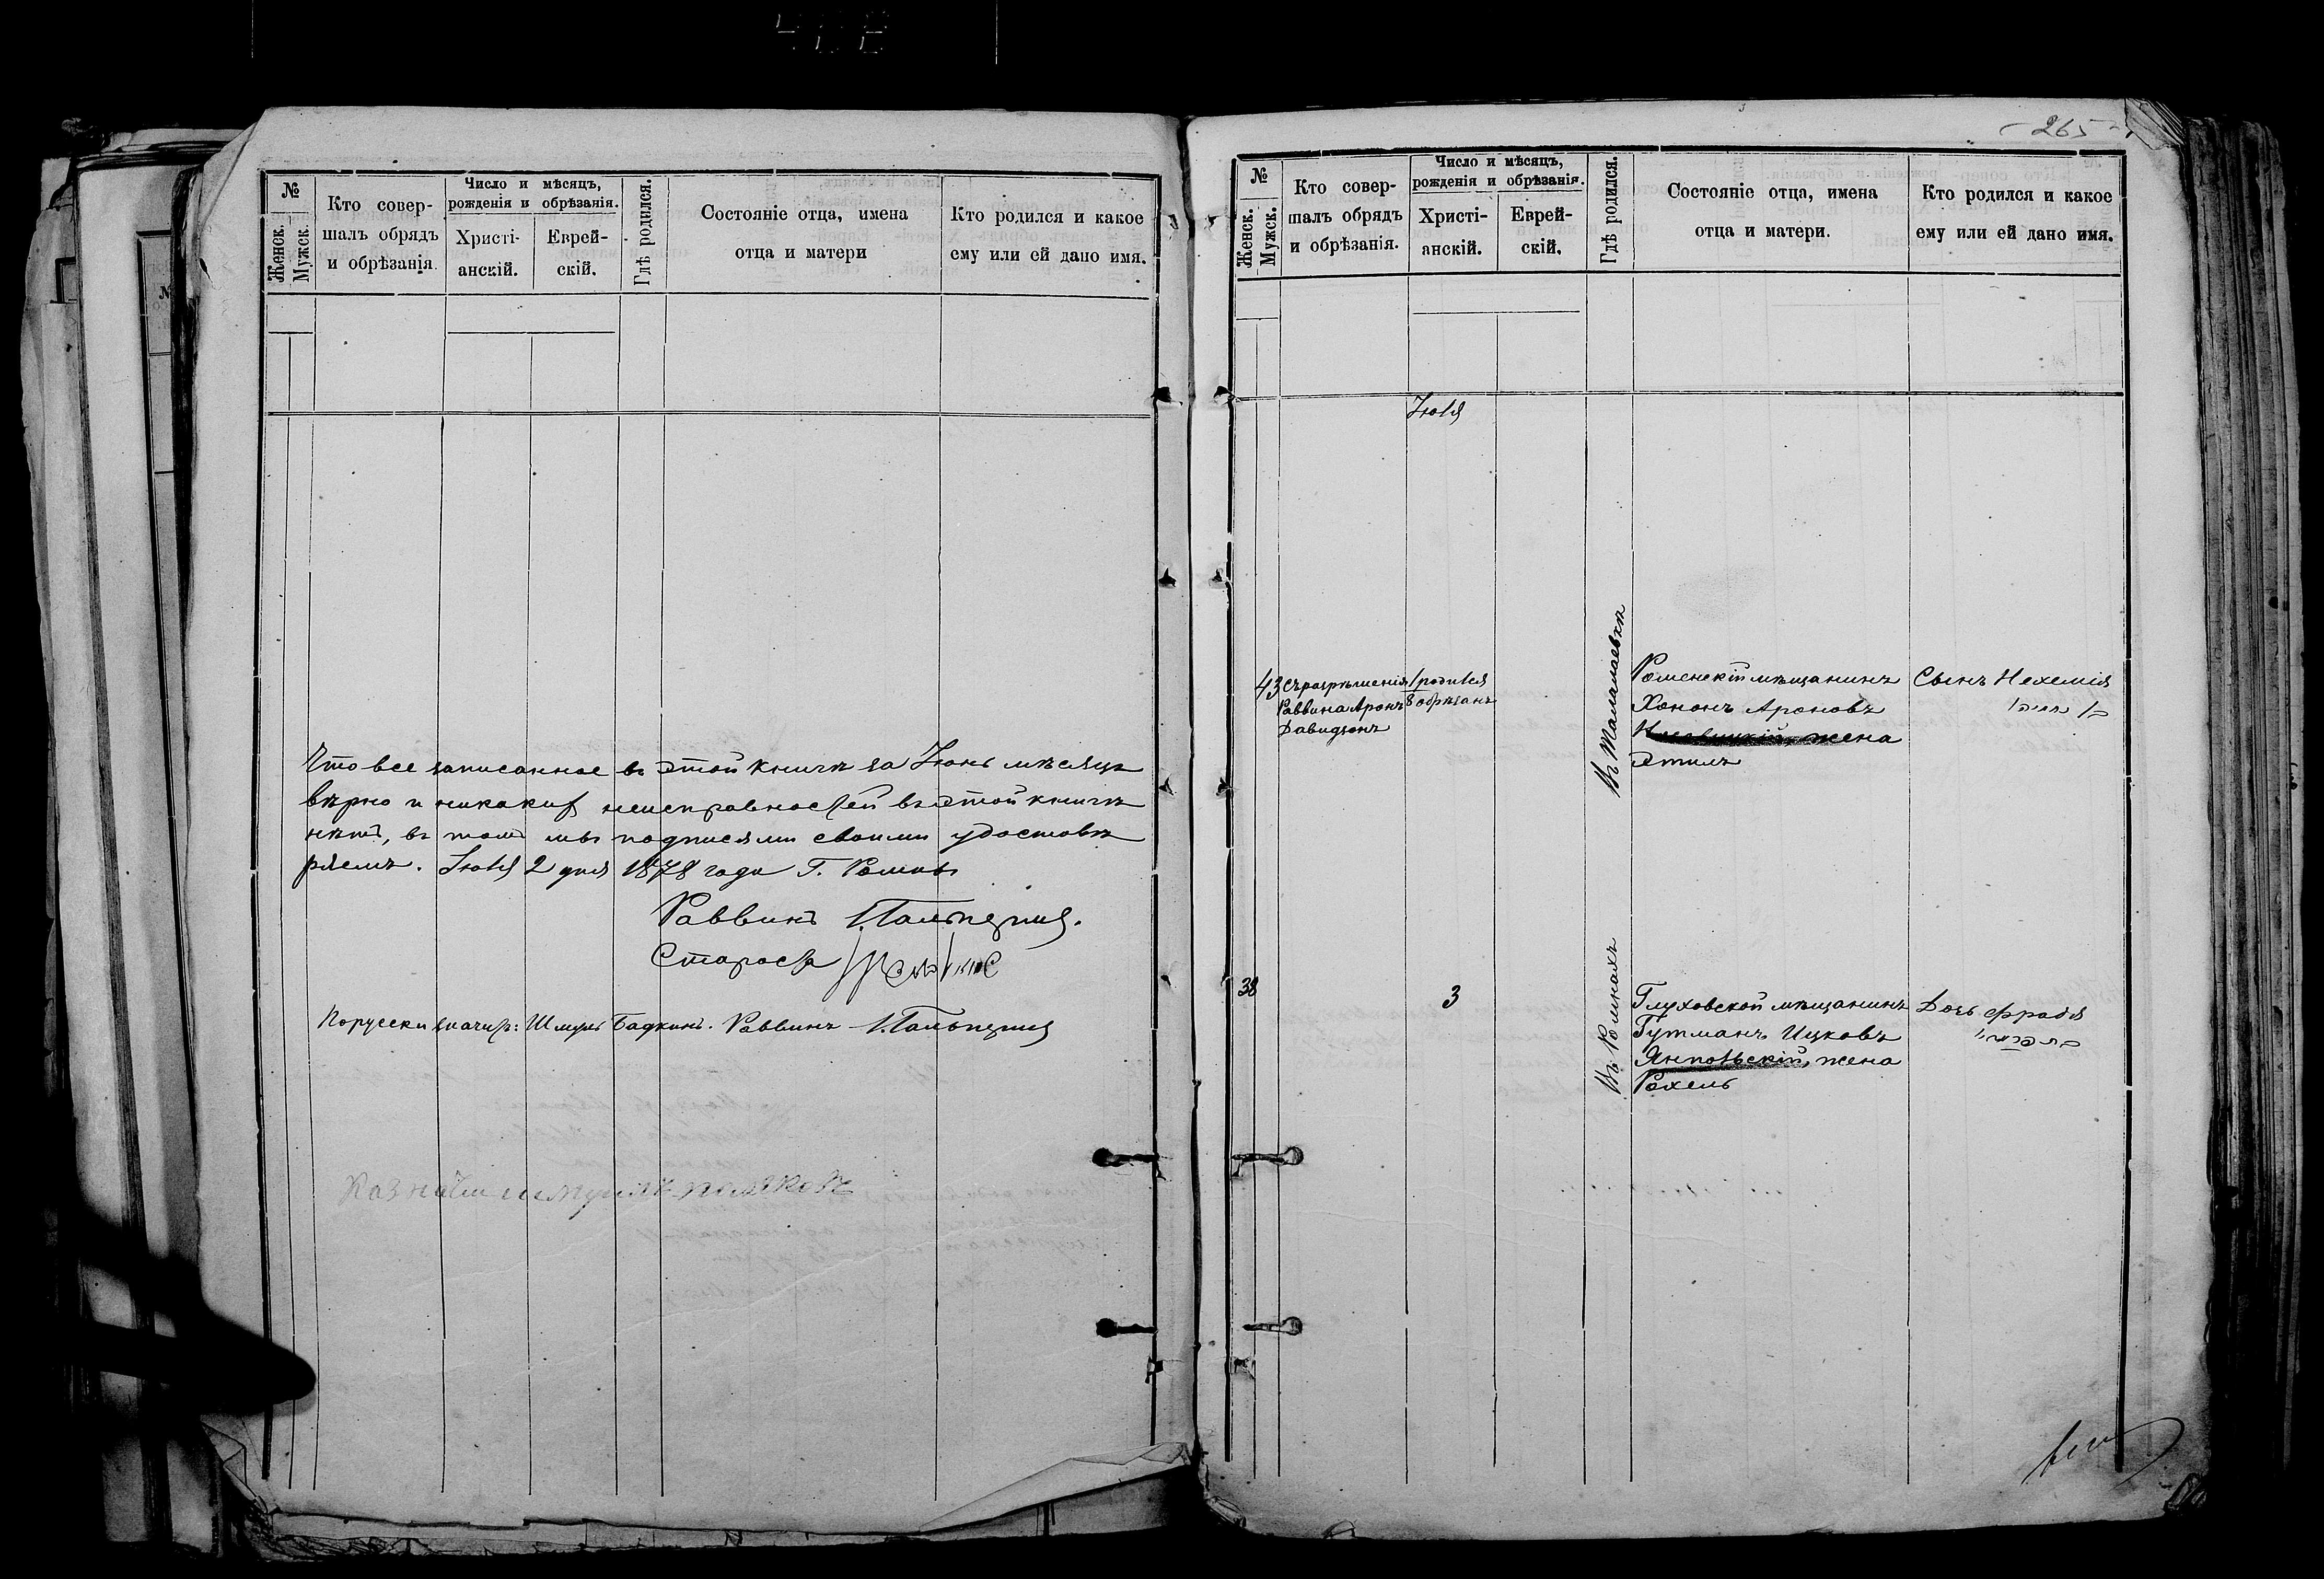 №
Женск.
Мужск.
Кто совер-
шалъ обрядъ
и обрѣзанія.
Число и мѣсяцъ,
рожденія и обрѣзанія.
Христі-
анскій.
Еврей-
скій.
Гдѣ родился.
Состояніе отца, имена
отца и матери
Кто родился и какое
ему или ей дано имя.
Что все записанное въ этой книгѣ за Іюнь мѣсяцъ
вѣрно и никакихъ неисправностей въ этой книгѣ
нѣтъ, въ томъ мы подписями своими удостовѣ
ряемъ. Іюля 2 дня 1878 года Г. Ромны
Раввинъ
Староста
Порусски значитъ: Шмуль Бадкинъ. Раввинъ
265
№
Женск.
Мужск.
Кто совер-
шалъ обрядъ
и обрѣзанія.
Число и мѣсяцъ,
рожденія и обрѣзанія.
Христі-
анскій.
Еврей-
скій.
Гдѣ родился.
Состояніе отца, имена
отца и матери.
Кто родился и какое
ему или ей дано имя.
Іюля
43
Съ разрѣшенія
Раввина Аронъ
Давидзонъ
1 родился
8 обрѣзанъ
Въ Талалаевкѣ
Роменскій мѣщанинъ
Хононъ Ароновъ
жена
Этиль
Сынъ Нехемія
38
3
Въ Ромнахъ
Глуховской мѣщанинъ
Гутманъ Ицковъ
Янпольскій, жена
Рахель
Дочь Фрадя